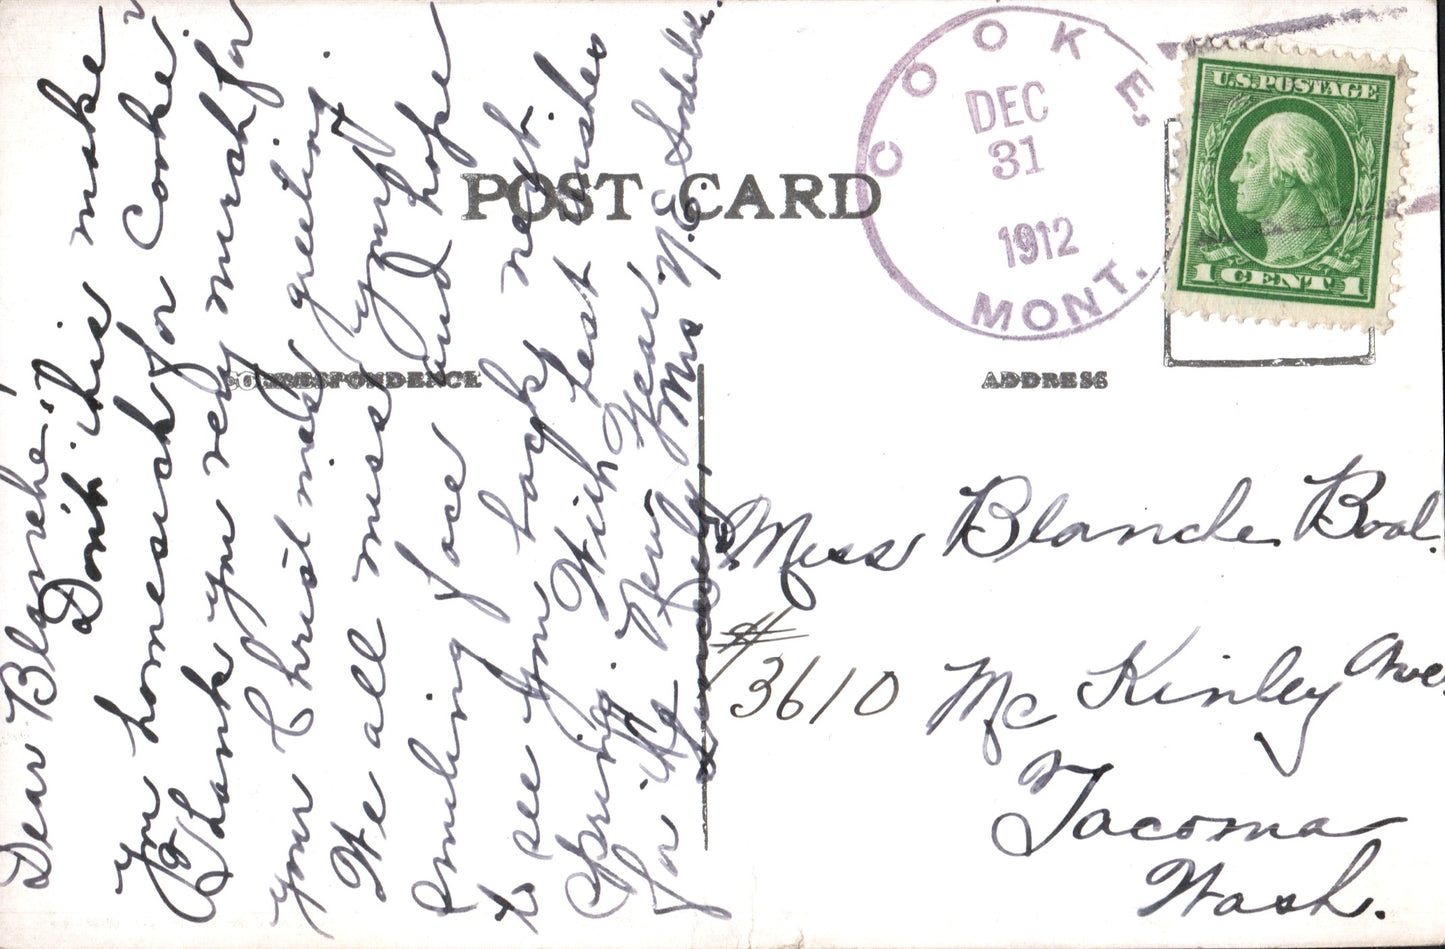 Dear Blanche:
Don't this make
you homesick for Cooke?
Thank you very much for
your Christmas greeting
We all miss your
smiling face and hope
to see you back next
Spring. With best wishes
for the New Year,
Sincerely, Mrs N.E.
POST CARD
CORRESPONDENCE
COOKE,
DEC
31
1912
MONT.
U.S. POSTAGE
1 CENT 1
ADDRESS
Miss Blanche Boal.
#3610 McKinley Ave.
Tacoma
Wash.